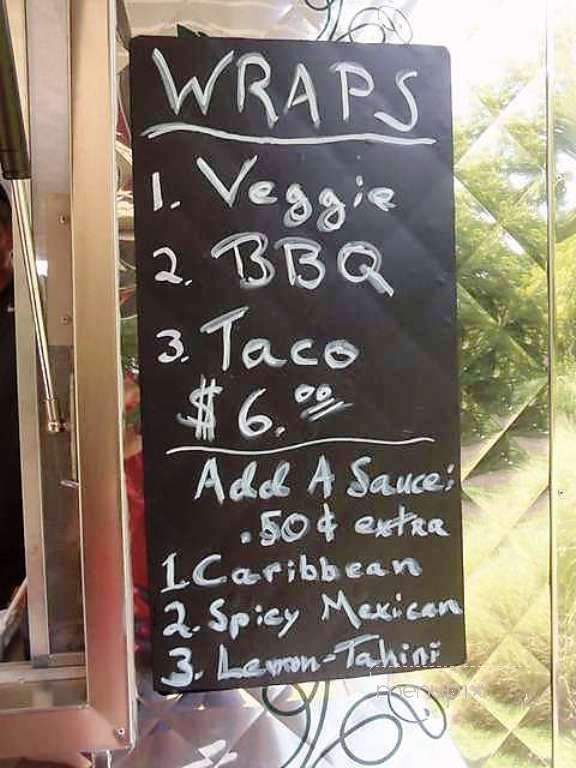 WRAPS
1. Veggie
2. BBQ
3. Taco
$6.00
Add A Sauce:
.50¢ extra
1. Caribbean
2. Spicy Mexican
3. Lemon-Tahini